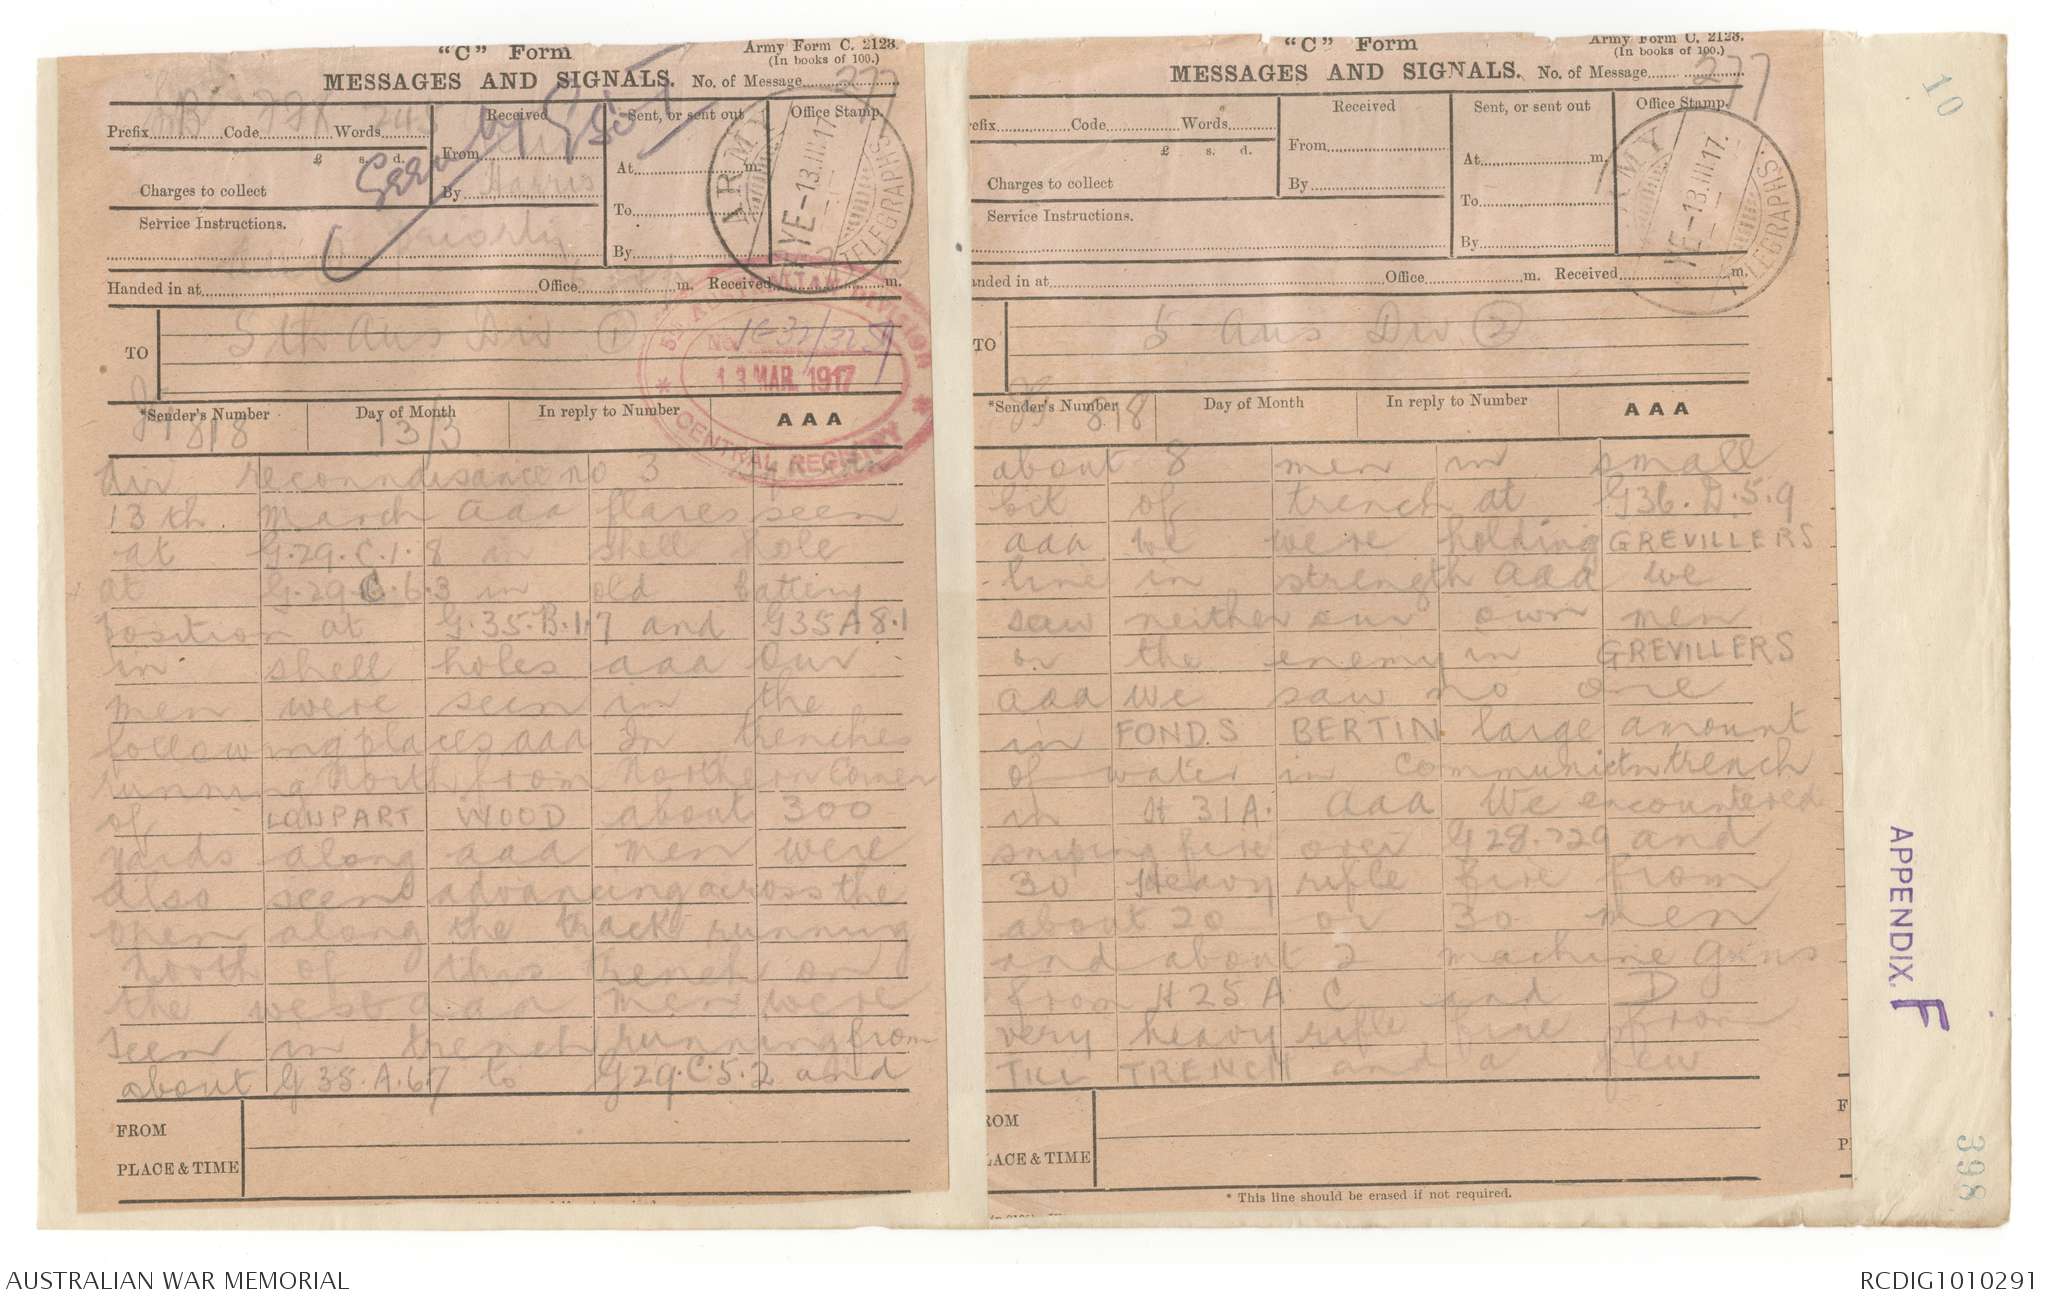 "C" Form
Army Form C. 2123.
(In books of 100.)
MESSAGES AND SIGNALS. No. of Message 277
Prefix Code Words
Received
Sent, or sent out
Office Stamp.
£ s. d.
From
At m.
Charges to collect
By Harris
Seen by GSO
To
Service Instructions.
Priority
By
ARMY TELEGRAPHS
YE-13.III.17.
Handed in at Office m. Received m.
TO
5th Aus Div (1)
5th AUSTRALIAN DIVISION
13 MAR. 1917
CENTRAL REGISTRY
*Sender's Number
Day of Month
In reply to Number
AAA
818
13/3
Air reconndisance no 3
13th. March aaa flares seen
at G.29.C.1.8 in shell hole
at G.29.C.6.3 in old battery
position at G.35.B.1.7 and G35A8.1
in shell holes aaa Our
men were seen in the
following places aaa In trenches
running North from Northern Corner
of LOUPART WOOD about 300
yards along aaa Men were
also seen advancing across the
open along the track running
North of this trench on
the west aaa Men were
seen in trench running from
about G35.A.6.7 to G29.C.5.2 and
FROM
PLACE & TIME
"C" Form
Army Form C. 2123.
(In books of 100.)
MESSAGES AND SIGNALS. No. of Message 277
efix Code Words
Received
Sent, or sent out
Office Stamp.
£ s. d.
From
At m.
Charges to collect
By
To
Service Instructions.
By
ARMY TELEGRAPHS
YE-13.III.17.
nded in at Office m. Received m.
TO
5 Aus Div (2)
*Sender's Number
Day of Month
In reply to Number
AAA
818
about 8 men in small
bit of trench at G36.D.5.9
aaa We were holding GREVILLERS
line in strength aaa we
saw neither our own men
or the enemy in GREVILLERS
aaa We saw no one
in FONDS BERTIN large amount
of water in communictn trench
in H 31A. aaa We encountered
sniping fire over G28.729 and
30 Heavy rifle fire from
about 20 or 30 men
and about 2 machine guns
from H25A C and D
very heavy rifle fire from
TILL TRENCH and a few
ROM
LACE & TIME
F
P
* This line should be erased if not required.
10
APPENDIX. F
398
AUSTRALIAN WAR MEMORIAL
RCDIG1010291